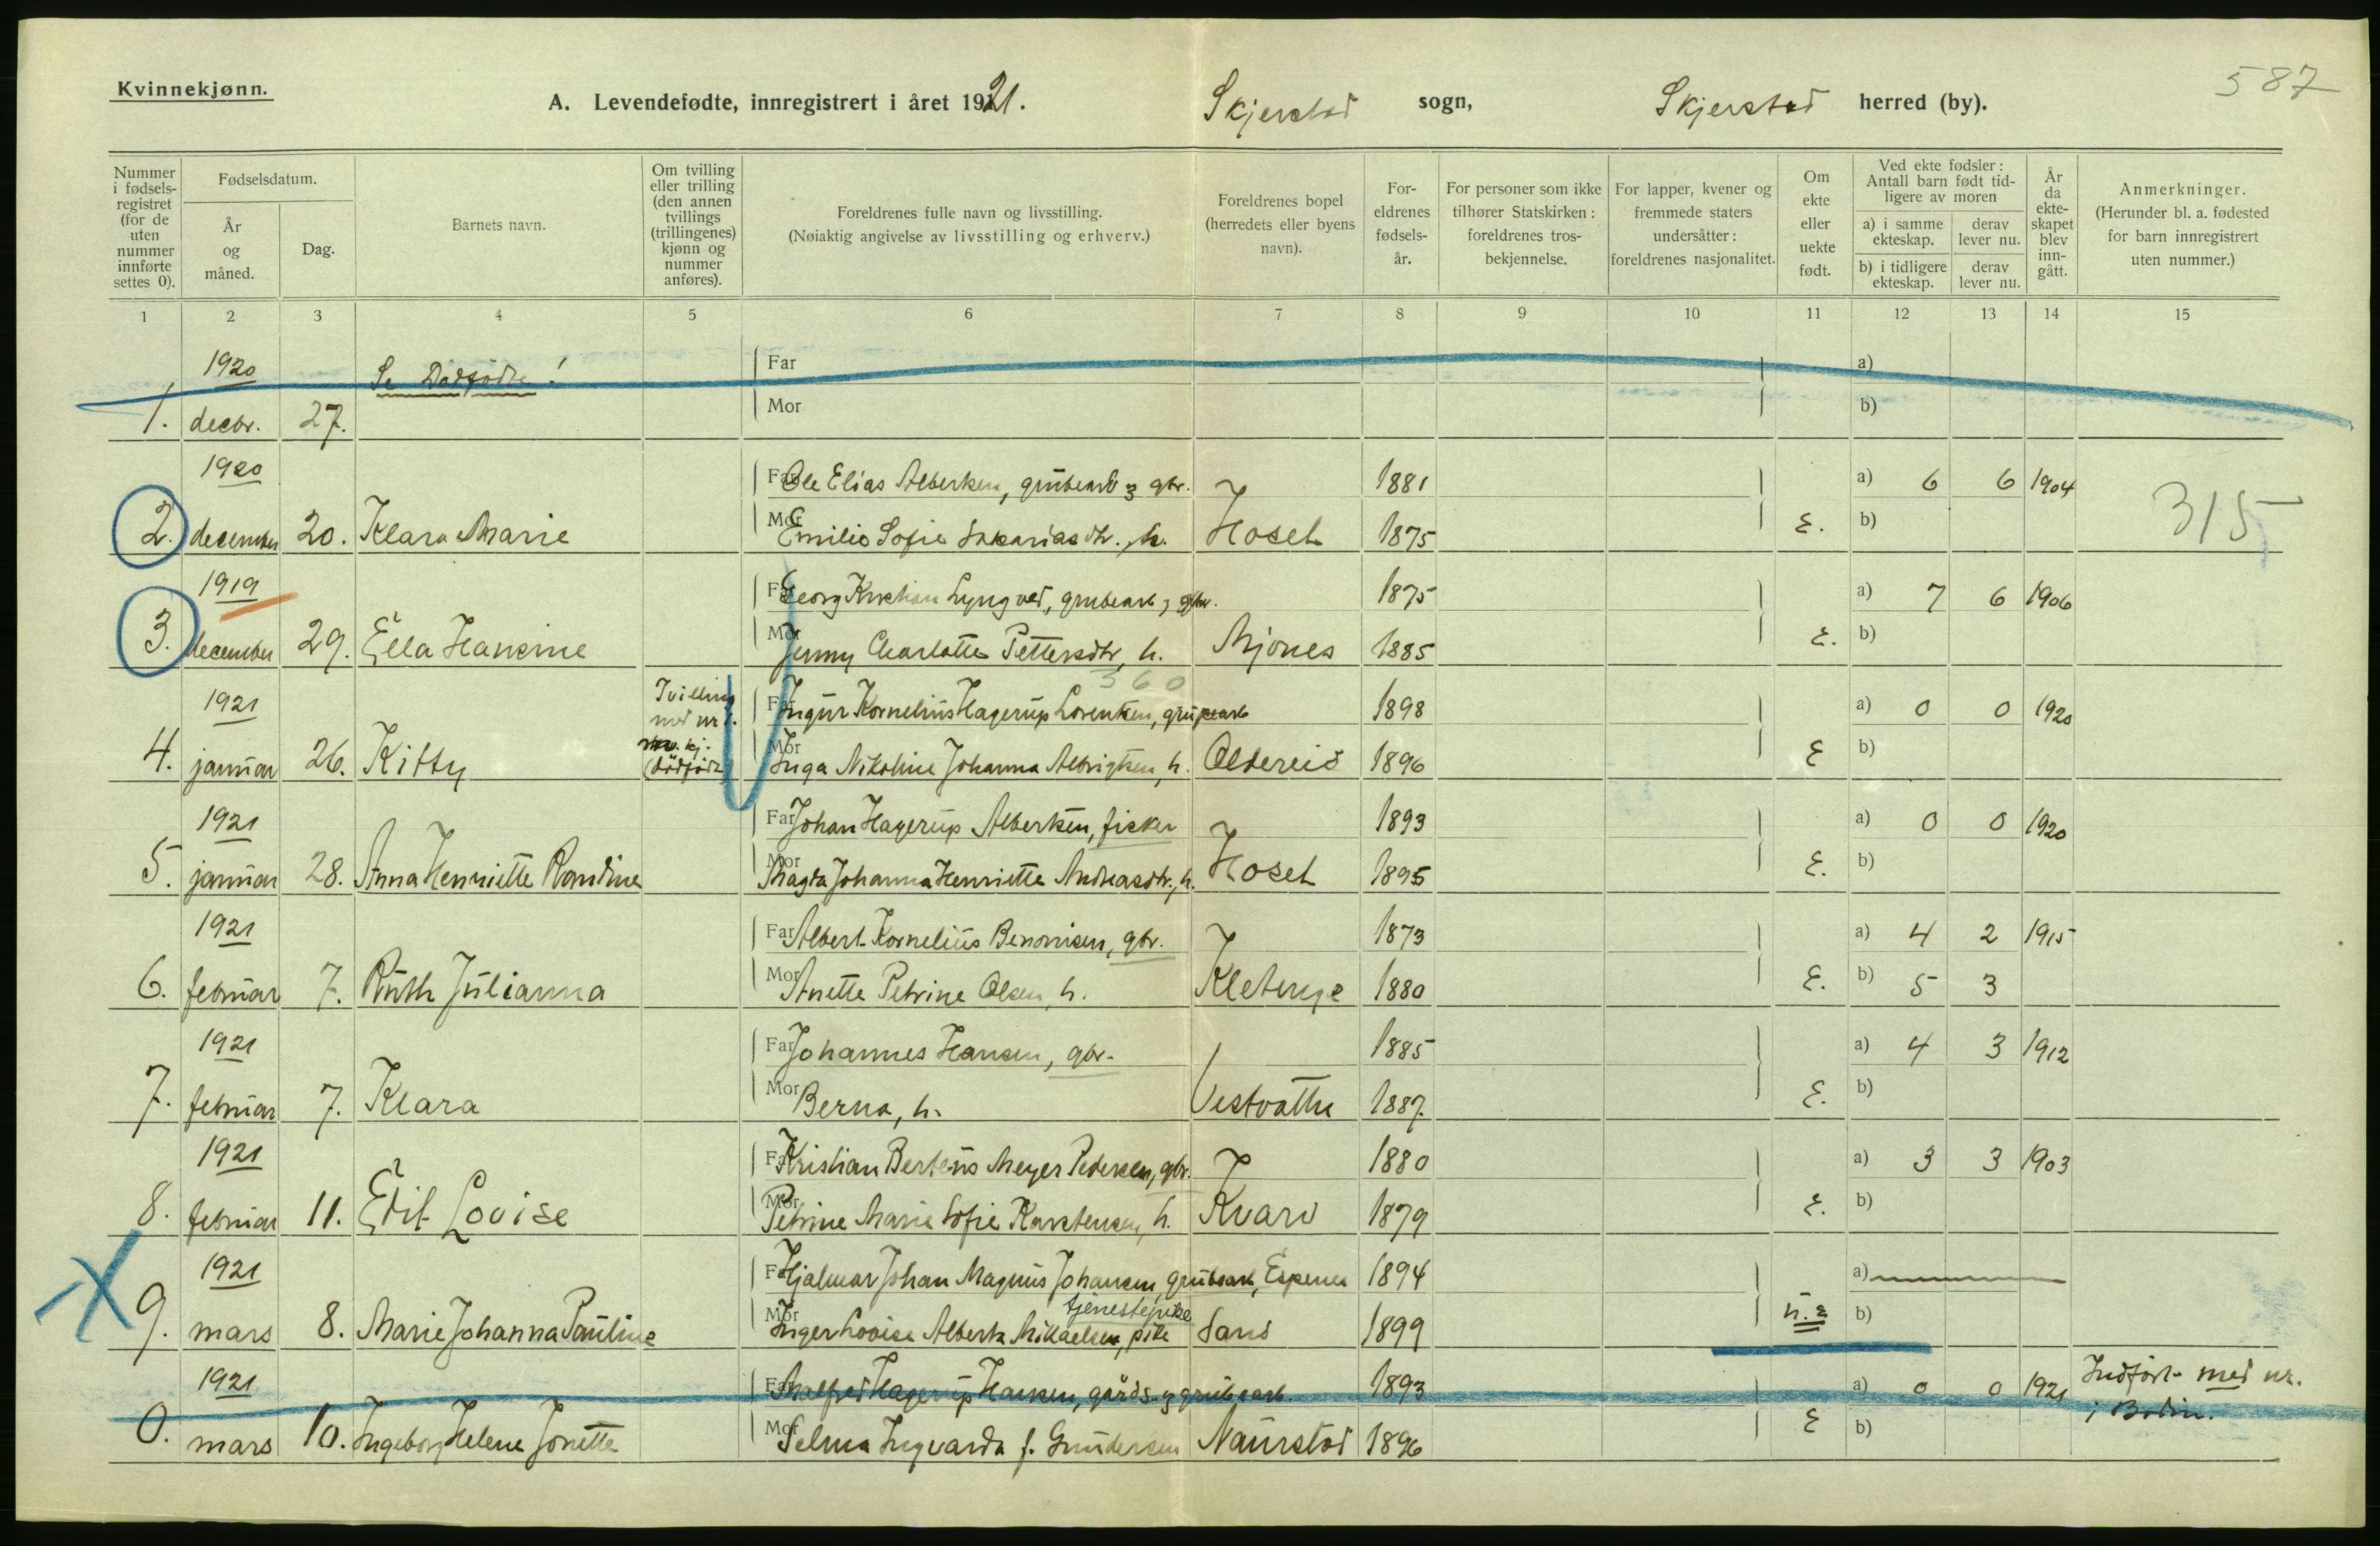 Kvinnekjønn.
587
A. Levendefødte, innregistrert i året 1921. Skjerstad sogn, Skjerstad herred (by).
Nummer i fødsels-registret (for de uten nummer innførte settes 0).
Fødselsdatum.
År og måned.
Dag.
Barnets navn.
Om tvilling eller trilling (den annen tvillings (trillingenes) kjønn og nummer anføres).
Foreldrenes fulle navn og livsstilling.
(Nøiaktig angivelse av livsstilling og erhverv.)
Foreldrenes bopel (herredets eller byens navn).
For-eldrenes fødsels-år.
For personer som ikke tilhører Statskirken: foreldrenes tros-bekjennelse.
For lapper, kvener og fremmede staters undersåtter: foreldrenes nasjonalitet.
Om ekte eller uekte født.
Ved ekte fødsler: Antall barn født tid-ligere av moren
a) i samme ekteskap.
derav lever nu.
b) i tidligere ekteskap.
derav lever nu.
År da ekte-skapet blev inn-gått.
Anmerkninger.
(Herunder bl. a. fødested for barn innregistrert uten nummer.)
1 2 3 4 5 6 7 8 9 10 11 12 13 14 15
1920 Se Dødfødte! Far a)
1. decbr. 27. Mor b)
1920 Far Ole Elias Albertsen, grubearb. & gbr. 1881 a) 6 6 1904
2. december 20. Klara Marie Mor Emilie Sofie Sakariasdtr., h. Hoset 1875 E. b) 315
1919 Far Georg Kristian Lyngved, grubearb & gbr. 1875 a) 7 6 1906
3. december 29. Ella Hansine Mor Jenny Charlotte Pettersdtr, h. Mjones 1885 E. b)
360
1921 Tvilling med nr 1. Far Ingvr Kornelius Hagerup Lorentsen, grubearb 1898 a) 0 0 1920
4. januar 26. Kitty kv. kj. (dødfødt) Mor Inga Nikoline Johanna Albrigtsen, h. Oldereid 1896 E b)
1921 Far Johan Hagerup Albertsen, fisker 1893 a) 0 0 1920
5. januar 28. Anna Henriette Randine Mor Magda Johanna Henriette Andreasdtr., h. Hoset 1895 E. b)
1921 Far Albert Kornelius Benonisen, gbr. 1873 a) 4 2 1915
6. februar 7. Ruth Julianna Mor Anette Petrine Olsen, h. Kletenge 1880 E. b) 5 3
1921 Far Johannes Hansen, gbr. 1885 a) 4 3 1912
7. februar 7. Klara Mor Berna, h. Vestvatne 1887. E. b)
1921 Far Kristian Berteus Meyer Pedersen, gbr. 1880 a) 3 3 1903
8. februar 11. Edit Lovise Mor Petrine Marie Sofie Karstensen, h. Kvarv 1879 E. b)
1921 Far Hjalmar Johan Magnus Johansen, grubearb, Espenes 1894 a)
tjenestepike
9. mars 8. Marie Johanna Pauline Mor Inger Lovise Alberta Mikaelsen, pike Sand 1899 u.E b)
1921 Far Malfred Hagerup Hansen, gårds- & grubearb. 1893 a) 0 0 1921 Indført med nr. i Bodin.
0. mars 10. Ingeborg Helene Jonette Mor Selma Ingvarda f. Gundersen Naurstad 1896 E b)